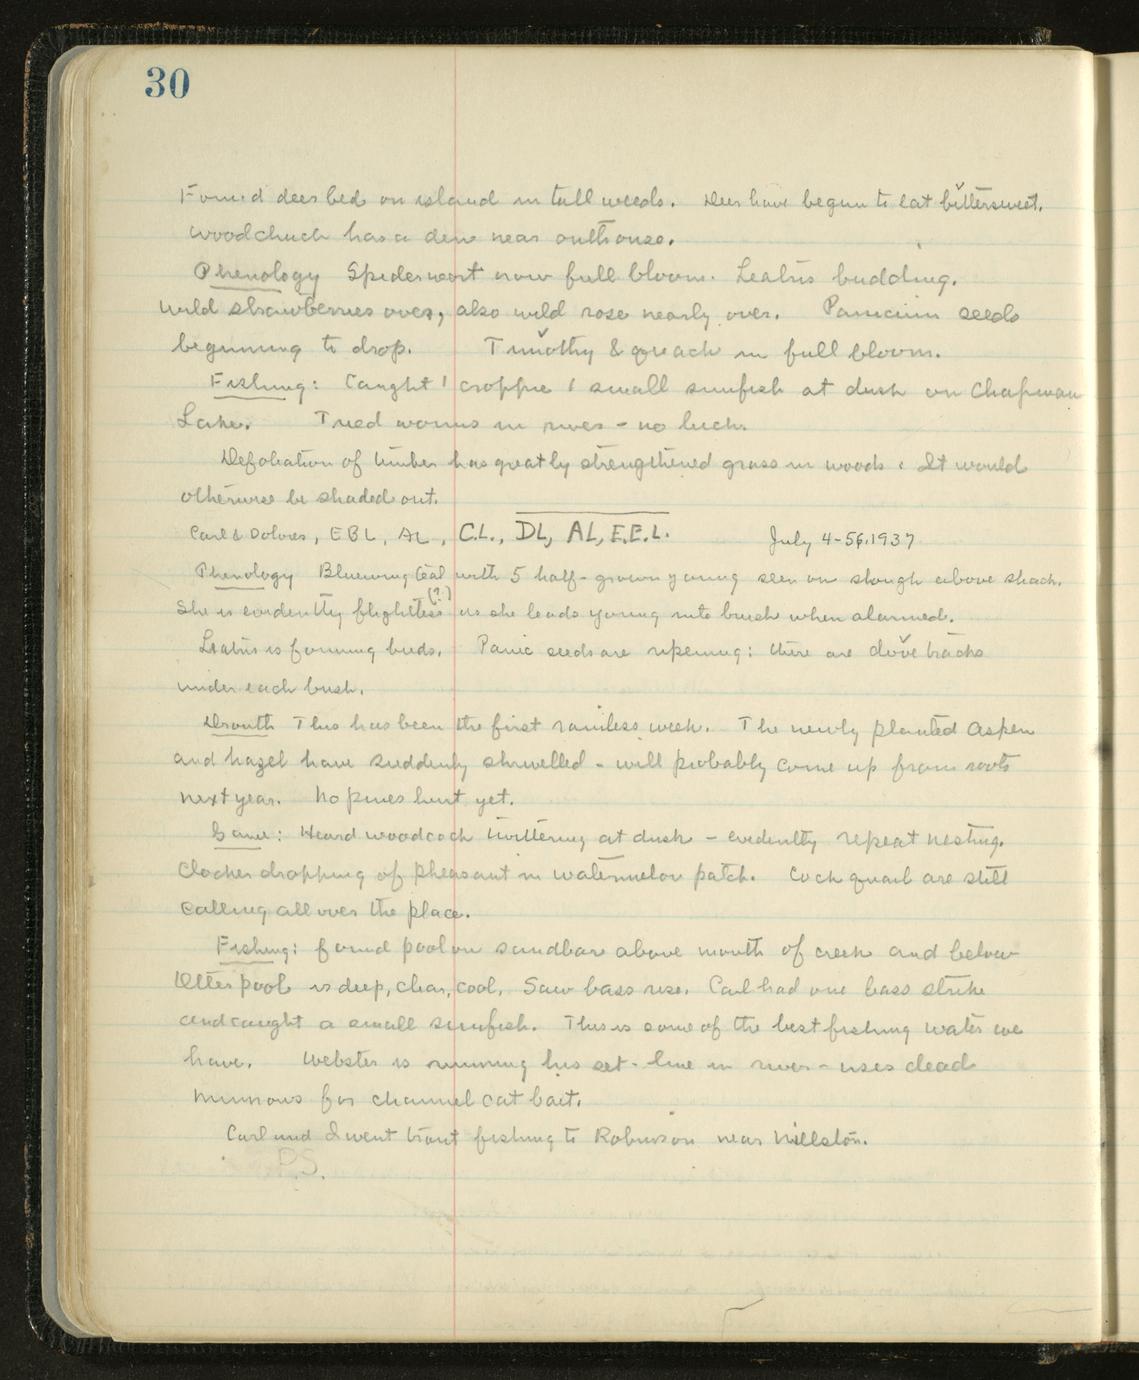 30
Found deer bed on island in tall weeds. Deer have begun to eat bittersweet.
Woodchuck has a den near outhouse.
Phenology Spiderwort now full bloom. Leatris budding.
Wild strawberries over, also wild rose nearly over. Panicum seeds
beginning to drop. Timothy & quack in full bloom.
Fishing: Caught 1 croppie 1 small sunfish at dusk on Chapman
Lake. Tried worms in river - no luck.
Defoliation of timber has greatly strengthened grass in woods. It would
otherwise be shaded out.
Carl & Dolores, EBL, AL, C.L., DL, AL, E.E.L. July 4-5, 1937
Phenology Bluewing teal with 5 half-grown young seen on slough above shack.
She is evidently flightless (?) as she leads young into brush when alarmed.
Liatris is forming buds. Panic seeds are ripening: there are dove tracks
under each bush.
Drouth This has been the first rainless week. The newly planted Aspen
and hazel have suddenly shrivelled - will probably come up from roots
next year. No pines hurt yet.
Game: Heard woodcock twittering at dusk - evidently repeat nesting.
Clocker dropping of pheasant in watermelon patch. Cock quail are still
calling all over the place.
Fishing: found pool on sandbar above mouth of creek and below
Otter pool is deep, clear, cool. Saw bass rise. Carl had one bass strike
and caught a small sunfish. This is some of the best fishing water we
have. Webster is running his set-line in river - uses dead
minnows for channel cat bait.
Carl and I went trout fishing to Robinson near Millston.
P.S.